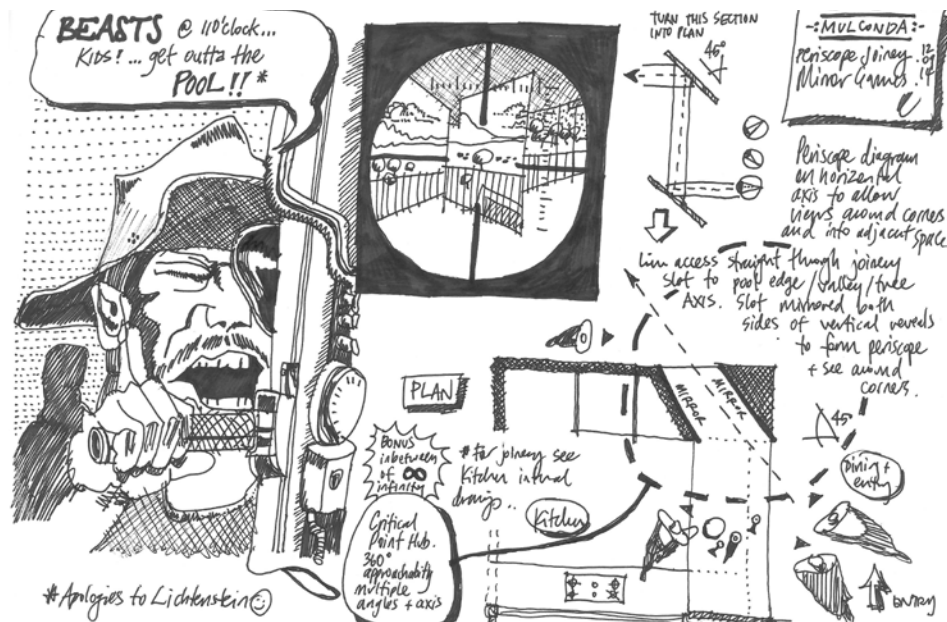 BEASTS @ 11o'clock...
KIDS! ... get outta the
POOL!! *
TURN THIS SECTION
INTO PLAN
45°
-:- MULGONDA -:-
Periscope Joinery
Mirror Games
12
09
14
Periscope diagram
on horizontal
axis to allow
views around corners
and into adjacent space
Line access straight through joinery
slot to pool edge / valley / tree
AXIS. Slot mirrored both
sides of vertical reveals
to form periscope
+ see around
corners.
PLAN
MIRROR
MIRROR
45°
BONUS
inbetween
of ∞
infinity
* For joinery see
Kitchen internal
drawings..
Kitchen
Dining +
entry
Critical
Point Hub.
360°
approachability
multiple
angles + axis
ENTRY
* Apologies to Lichtenstein ☺